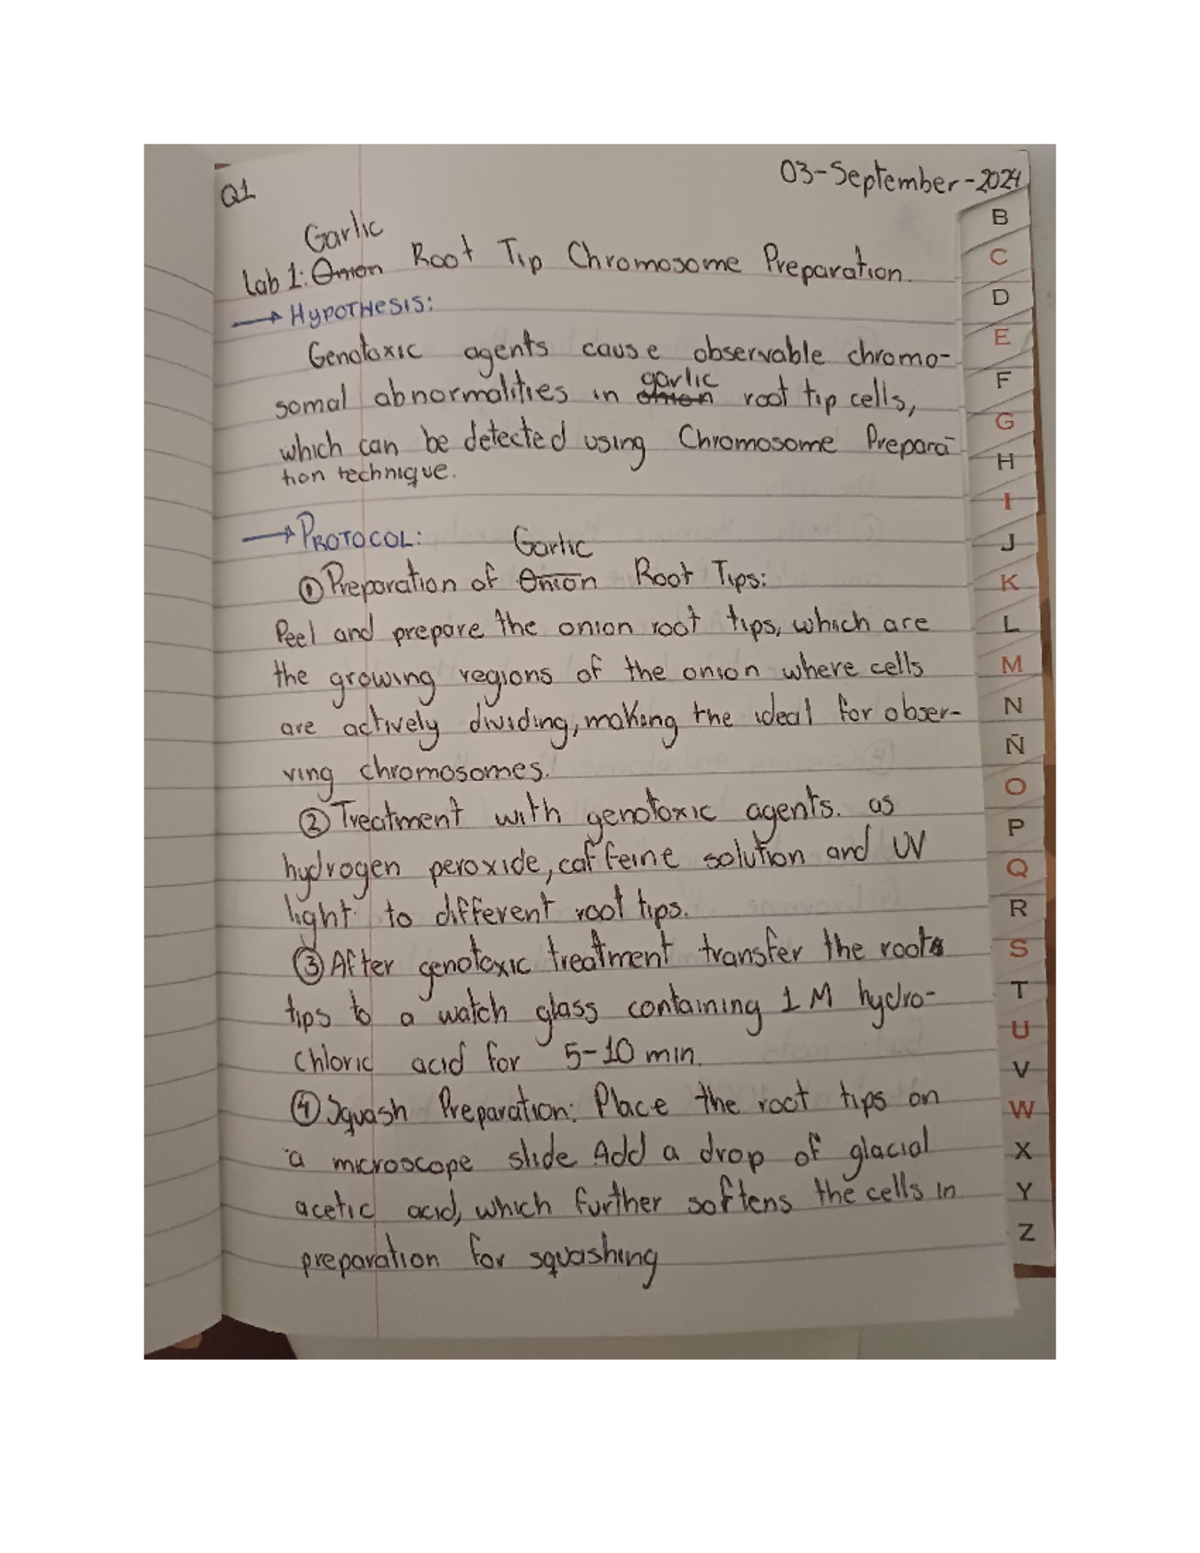 Q1
03-September-2024
Garlic
Lab 1: Onion Root Tip Chromosome Preparation.
→ HYPOTHESIS:
Genotoxic agents cause observable chromo-
garlic
somal abnormalities in onion root tip cells,
which can be detected using Chromosome Prepara-
tion technique.
→ PROTOCOL:
Garlic
① Preparation of Onion Root Tips:
Peel and prepare the onion root tips, which are
the growing regions of the onion where cells
are actively dividing, making the ideal for obser-
ving chromosomes.
② Treatment with genotoxic agents. as
hydrogen peroxide, caffeine solution and UV
light to different root tips.
③ After genotoxic treatment transfer the roots
tips to a watch glass containing 1 M hydro-
chloric acid for 5-10 min.
④ Squash Preparation: Place the root tips on
a microscope slide. Add a drop of glacial
acetic acid, which further softens the cells in
preparation for squashing
B
C
D
E
F
G
H
I
J
K
L
M
N
Ñ
O
P
Q
R
S
T
U
V
W
X
Y
Z